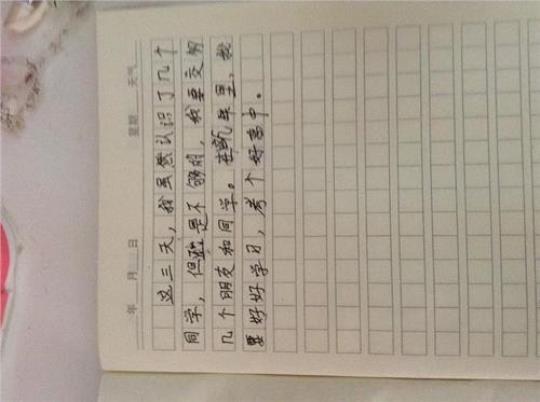 年 月 日 星期 天气
这三天，我虽然认识了几个
同学，但是不够的，我要交好
几个朋友和同学。在新年里，我
要好好学习，考个好高中。